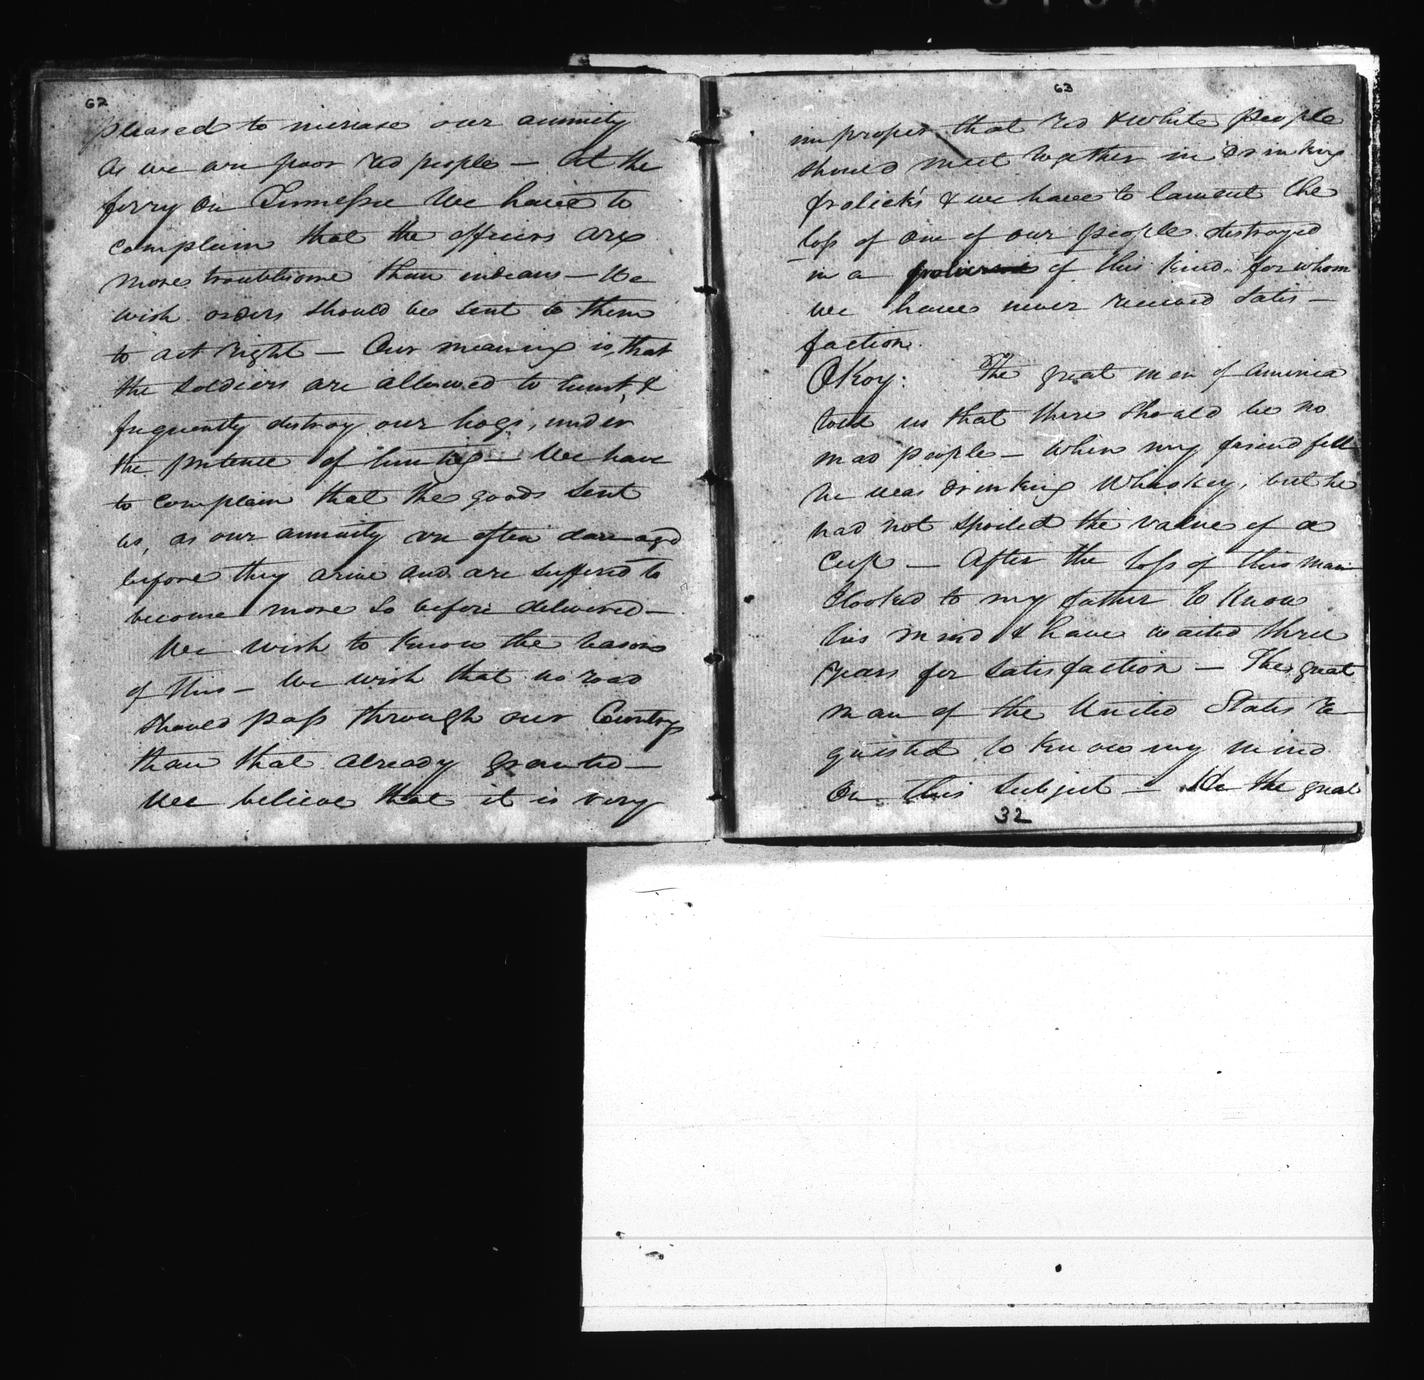 62
pleased to increase our annuity
as we are poor red people — At the
ferry on Tennessee We have to
complain that the officers are
more troublesome than indians — We
wish orders should be sent to them
to act right — Our meaning is, that
the soldiers are allowed to hunt, &
frequently destroy our hogs, under
the pretence of hunting — We have
to complain that the goods sent
us, as our annuity are often damaged
before they arive and are suffered to
become more so before delivered —
We wish to know the reason
of this — We wish that no road
should pass through our Country
than that already granted —
We believe that it is very
63
improper that red & white people
should meet together in drinking
frolick's & we have to lament the
loss of one of our people destroyed
in a of this kind. for whom
we have never received satis —
faction.
OKoy: The great men of America
told us that there should be no
mad people — When my friend fell
he was drinking Whiskey, but he
had not spoiled the value of a
Cup — After the loss of this man
I looked to my father to know
his mind & have waited three
years for satisfaction — The great
man of the United States re
quested to know my mind
on this subject — the great
32